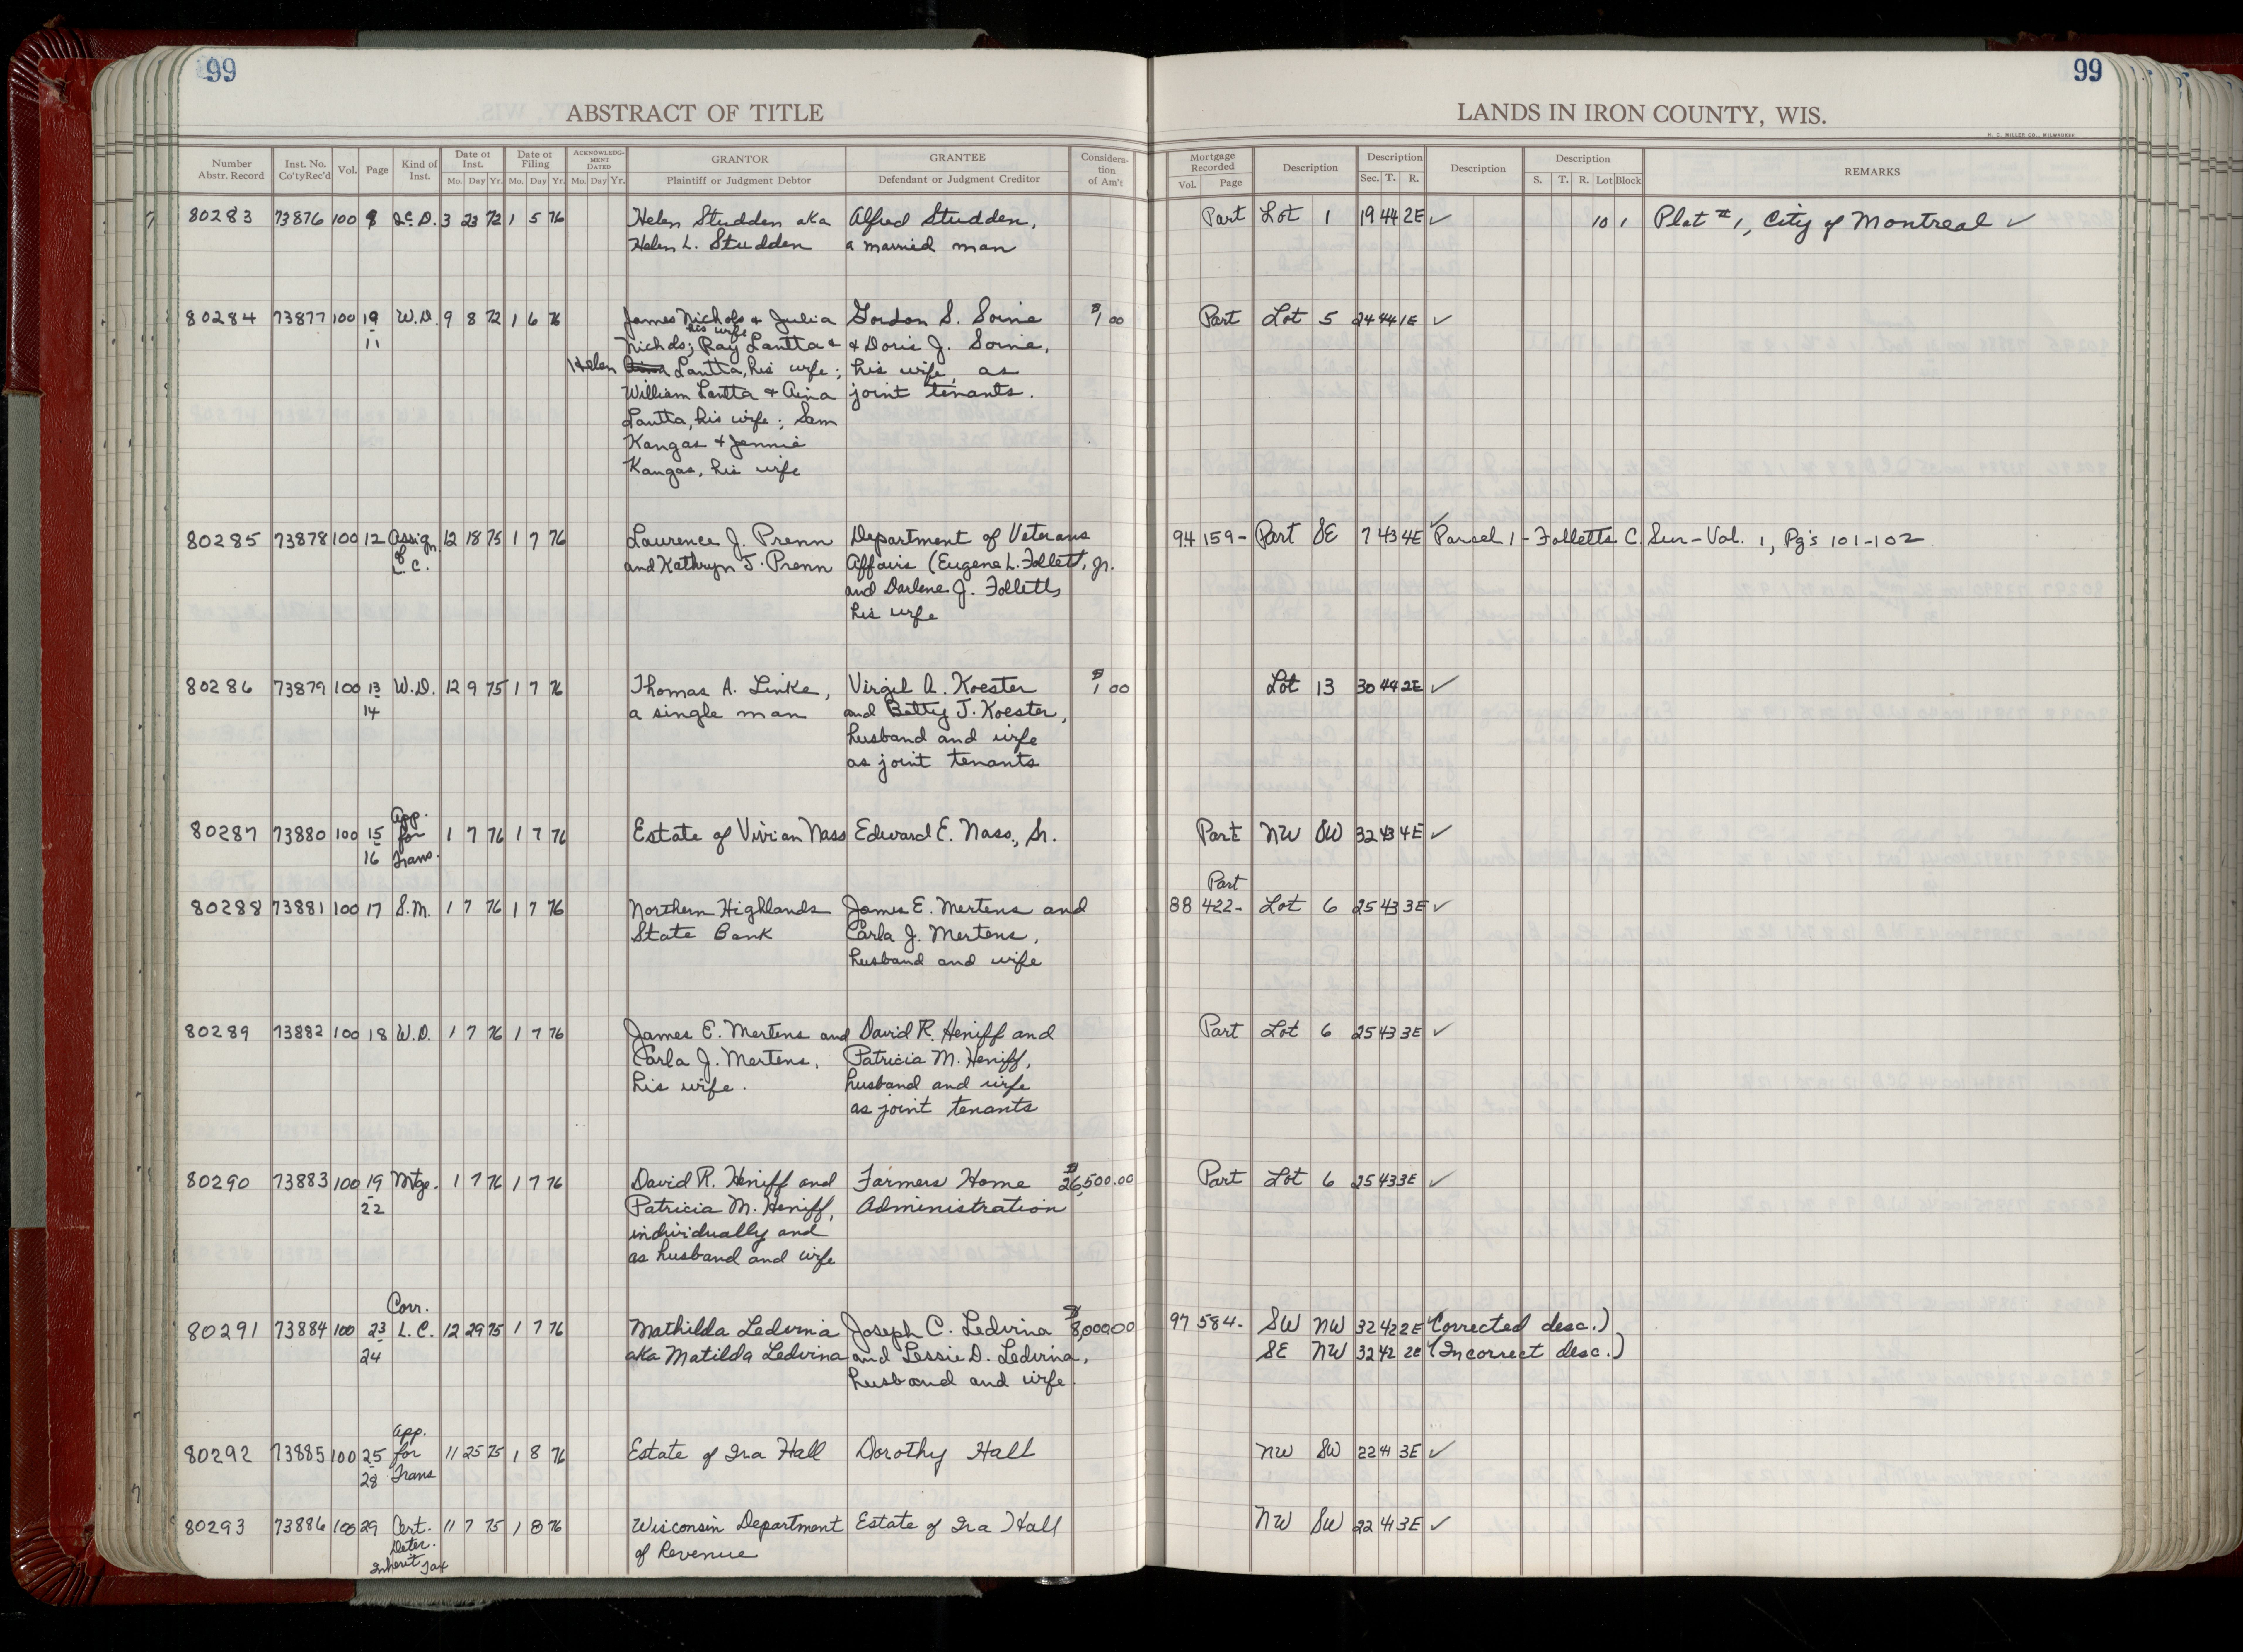 99
99
ABSTRACT OF TITLE
LANDS IN IRON COUNTY, WIS.
H. C. MILLER CO., MILWAUKEE
Number Abstr. Record Inst. No. Co'ty Rec'd Vol. Page Kind of Inst. Date of Inst. Mo. Day Yr. Date of Filing Mo. Day Yr. ACKNOWLEDGMENT DATED Mo. Day Yr. GRANTOR Plaintiff or Judgment Debtor GRANTEE Defendant or Judgment Creditor Consideration of Am't Mortgage Recorded Vol. Page Description Description Sec. T. R. Description Description S. T. R. Lot Block REMARKS
80283 73876 100 8 Q.C.D. 3 23 72 1 5 76 Helen Studden aka Alfred Studden, Part Lot 1 19 44 2E ✓ 10 1 Plat #1, City of Montreal ✓
Helen L. Studden a married man
80284 73877 100 19 W.D. 9 8 72 1 6 76 James Nichols & Julia Gordon S. Soine $1 00 Part Lot 5 24 44 1E ✓
his wife
11 Nichols; Ray Lantta & & Doris J. Soine,
Helen Lantta, his wife; his wife, as
William Lantta & Aina joint tenants.
Lantta, his wife; Sam
Kangas & Jennie
Kangas, his wife
80285 73878 100 12 Assign. 12 18 75 1 7 76 Laurence J. Prenn Department of Veterans 94 159- Part SE 7 43 4E ✓ Parcel 1 - Folletts C. Sur - Vol. 1, Pg's 101-102
of L. C. and Kathryn J. Prenn Affairs (Eugene L. Follett, Jr.
and Darlene J. Follett,
his wife
80286 73879 100 13 W.D. 12 9 75 1 7 76 Thomas A. Linke, Virgil A. Koester $1 00 Lot 13 30 44 2E ✓
14 a single man and Betty J. Koester,
husband and wife
as joint tenants
App.
80287 73880 100 15 for 1 7 76 1 7 76 Estate of Vivian Nass Edward E. Nass, Sr. Part NW SW 32 43 4E ✓
16 Trans.
Part
80288 73881 100 17 S.M. 1 7 76 1 7 76 Northern Highlands James E. Mertens and 88 422- Lot 6 25 43 3E ✓
State Bank Carla J. Mertens,
husband and wife
80289 73882 100 18 W.D. 1 7 76 1 7 76 James E. Mertens and David R. Heniff and Part Lot 6 25 43 3E ✓
Carla J. Mertens, Patricia M. Heniff,
his wife. husband and wife
as joint tenants
80290 73883 100 19 Mtge. 1 7 76 1 7 76 David R. Heniff and Farmers Home $26,500.00 Part Lot 6 25 43 3E ✓
22 Patricia M. Heniff, Administration
individually and
as husband and wife
Corr.
80291 73884 100 23 L. C. 12 29 75 1 7 76 Mathilda Ledvina Joseph C. Ledvina $8,000.00 97 584- SW NW 32 42 2E (Corrected desc.)
24 aka Matilda Ledvina and Lessie D. Ledvina, SE NW 32 42 2E (Incorrect desc.)
husband and wife.
App.
80292 73885 100 25 for 11 25 75 1 8 76 Estate of Ira Hall Dorothy Hall NW SW 22 41 3E ✓
28 Trans
80293 73886 100 29 Cert. 11 7 75 1 8 76 Wisconsin Department Estate of Ira Hall NW SW 22 41 3E ✓
Deter. of Revenue
Inherit Tax